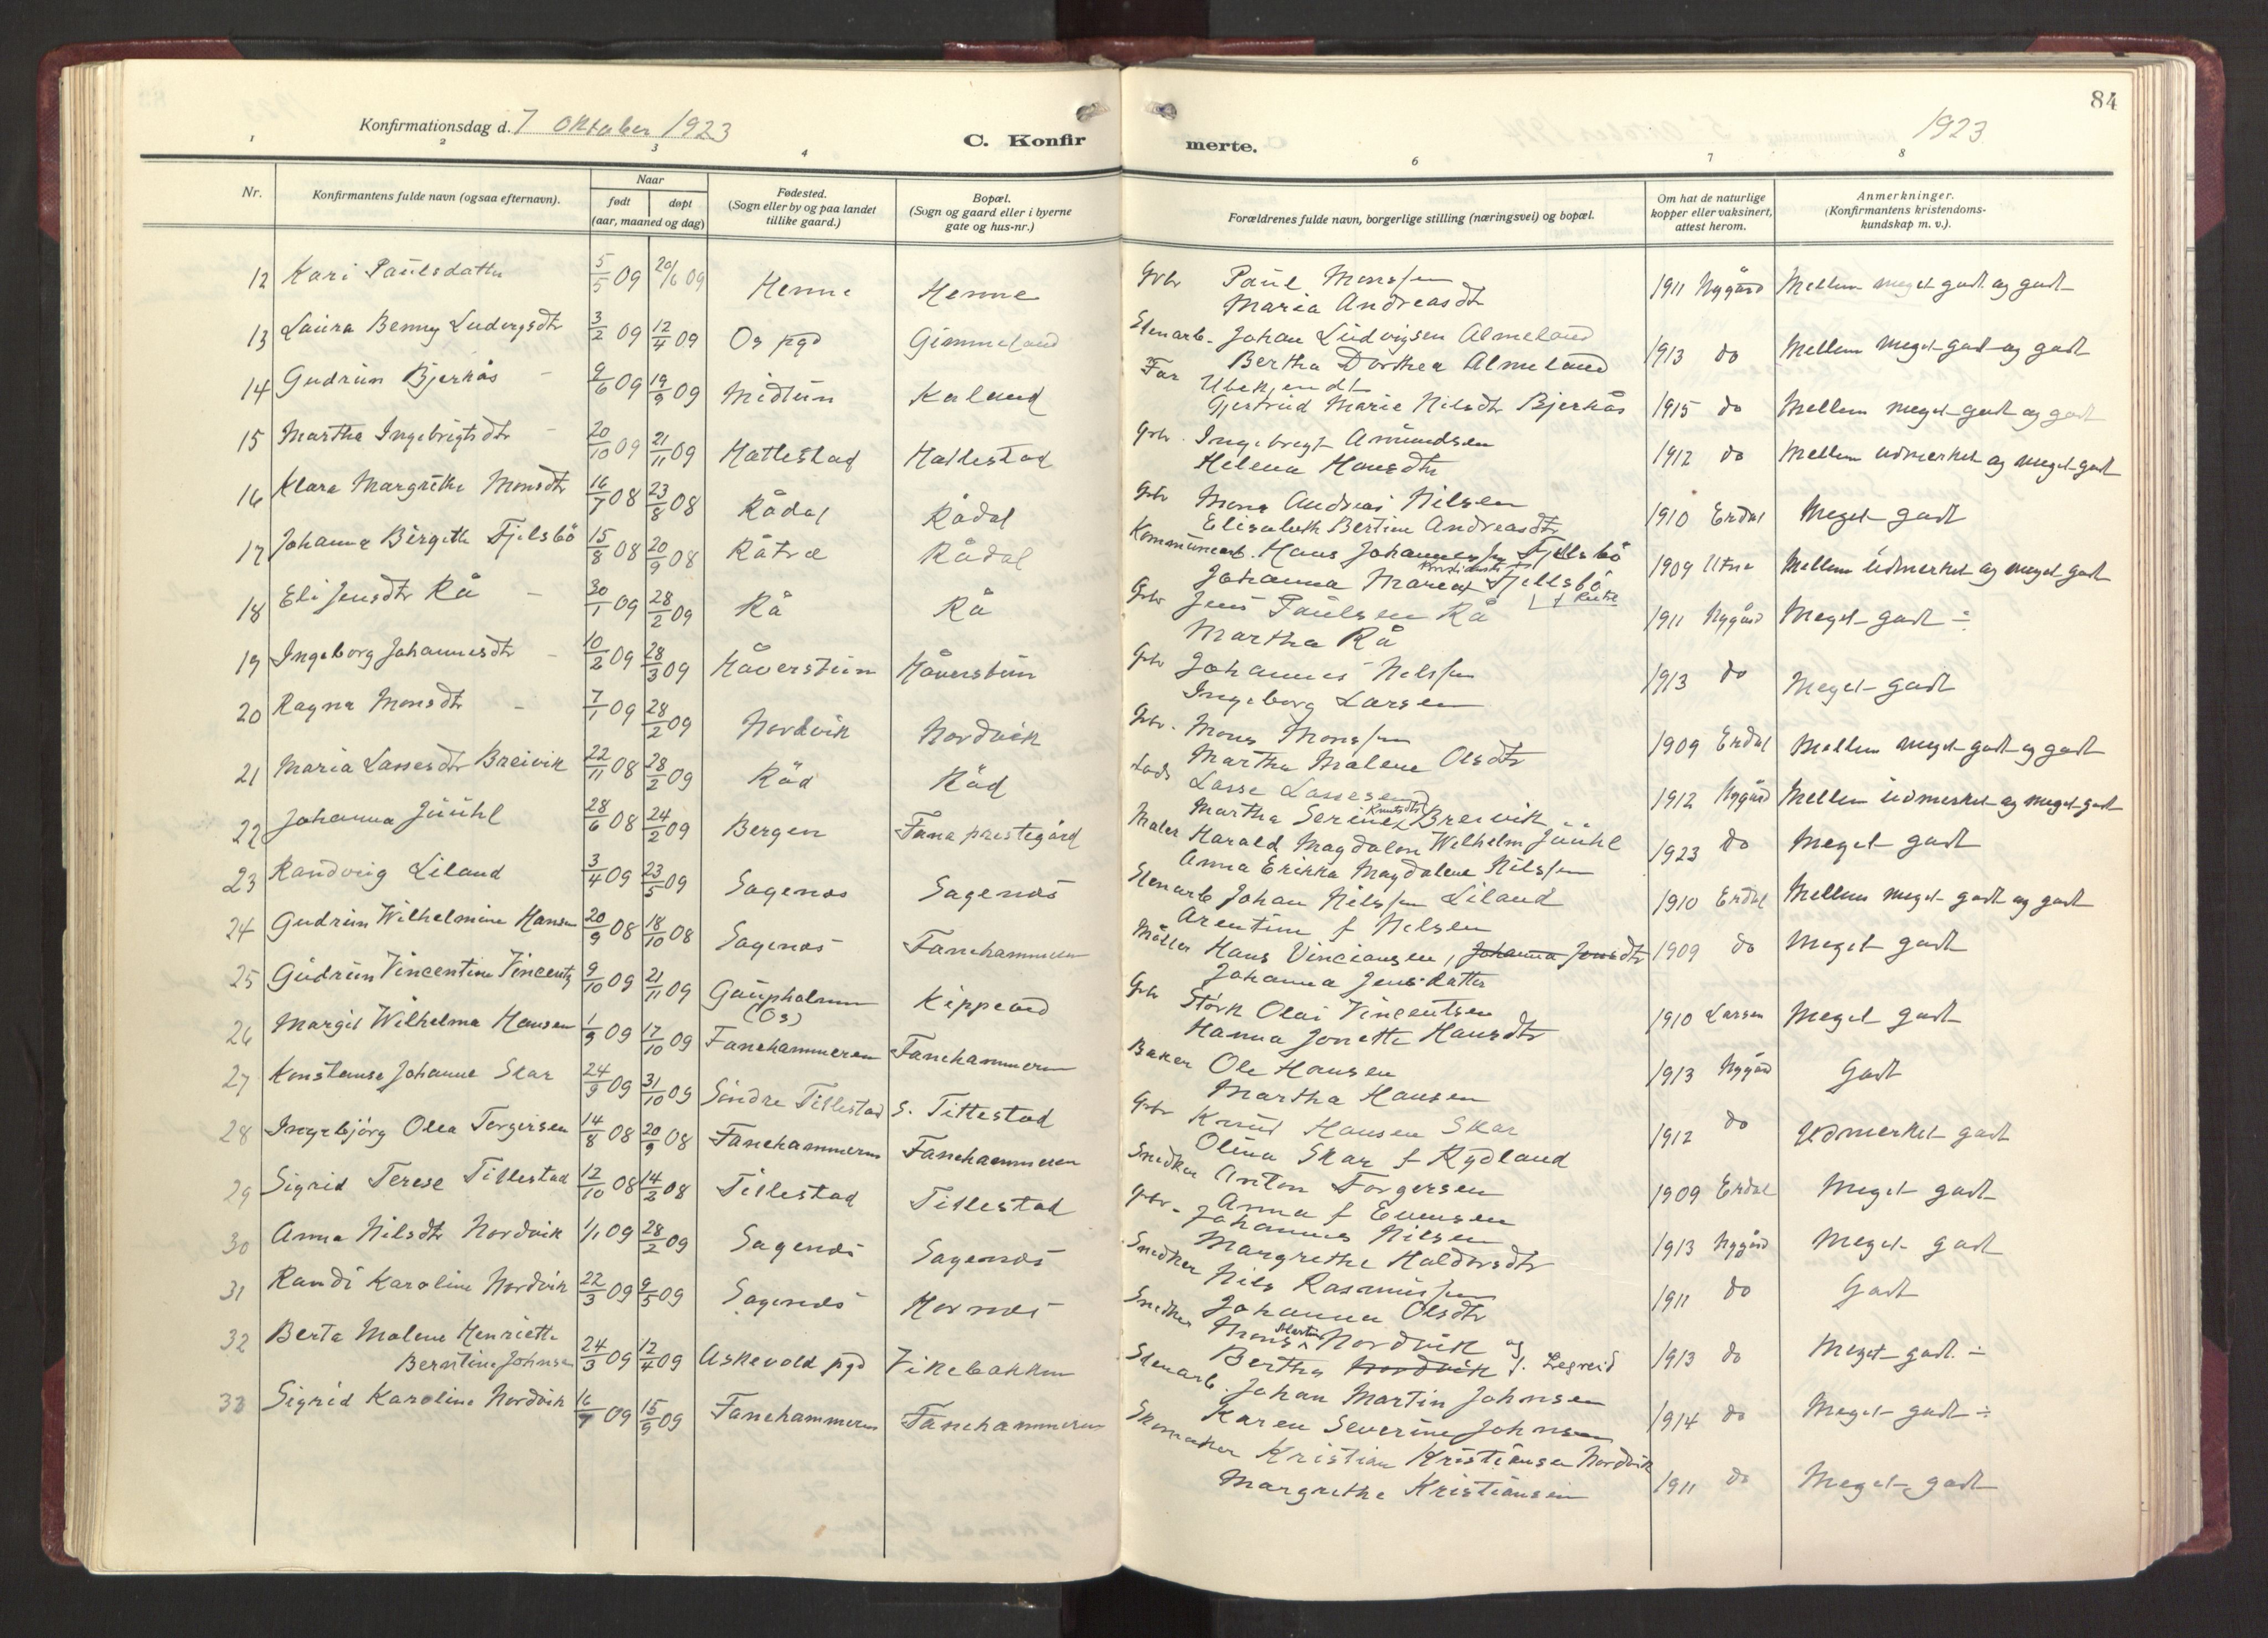 Konfirmationsdag d. 7 Oktober 1923
C. Konfir
merte.
1923
84
1 2 3 4 6 7 8
Nr.
Konfirmantens fulde navn (ogsaa efternavn).
Naar
født
døpt
(aar, maaned og dag)
Fødested.
(Sogn eller by og paa landet
tillike gaard.)
Bopæl.
(Sogn og gaard eller i byerne
gate og hus-nr.)
Forældrenes fulde navn, borgerlige stilling (næringsvei) og bopæl.
Om hat de naturlige
kopper eller vaksinert,
attest herom.
Anmerkninger.
(Konfirmantens kristendoms-
kundskap m. v.).
12 Kari Paulsdatter 5/5 09 20/6 09 Henne Henne Gbr Paul Monssen 1911 Nygård Mellem meget godt og godt
Maria Andreasdtr
13 Laura Benny Ludvigsdtr 3/2 09 12/4 09 Os pgd Gimmeland Stenarb. Johan Ludvigsen Almeland 1913 do Mellem meget godt og godt
Bertha Dorthea Almeland
14 Gudrun Bjerkås 9/6 09 19/9 09 Midtun Kaland Far Ubekjendt 1915 do Mellem meget godt og godt
Gjertrud Marie Nilsdtr Bjerkås
15 Martha Ingebrigtsdtr 20/10 09 21/11 09 Hattestad Hattestad Gbr. Ingebregt Amundsen 1912 do Mellem udmerket og meget godt
Helena Hansdtr
16 Klara Margrethe Monsdtr 16/7 08 23/8 08 Rådal Rådal Gbr Mons Andreas Nilsen 1910 Erdal Meget godt
Elisabeth Bertine Andreasdtr
17 Johanne Birgitte Fjelsbö 15/8 08 20/9 08 Råtræ Rådal Kommunearb. Hans Johannessen Fjellsbö 1909 Utne Mellem udmerket og meget godt
Johanna Maria Fjellsbö
18 Eli Jensdtr Rå 30/1 09 28/2 09 Rå Rå Gbr Jens Paulsen Rå 1911 Nygård Meget godt ÷
Martha Rå
19 Ingeborg Johannesdtr 10/2 09 28/3 09 Håverstun Håverstun Gbr Johannes Nilssen 1913 do Meget godt
Ingeborg Larsen
20 Ragna Monsdtr 7/1 09 28/2 09 Nordvik Nordvik Gbr. Mons Monssen 1909 Erdal Mellem meget godt og godt
Martha Malene Olsdtr
21 Maria Lassesdtr Breivik 22/11 08 28/2 09 Råd Råd Lods Lasse Lassesen 1912 Nygård Mellem udmerket og meget godt
Martha Serine Knutsdtr Breivik
22 Johanna Juuhl 28/6 08 24/2 09 Bergen Fana prestegård Maler Harald Magdalon Wilhelm Juuhl 1923 do Meget godt
Anna Erikka Magdalene Nilssen
23 Randvig Liland 3/4 09 23/5 09 Sagenes Sagenes Stenarb Johan Nilssen Liland 1910 Erdal Mellem meget godt og godt
Arentine f Nelsen
24 Gudrun Wilhelmine Hansen 20/9 08 18/10 08 Sagenes Fanehammeren Möller Hans Vinciansen, Johanna Jensdtr 1909 do Meget godt
Johanna Jensdatter
25 Gudrun Vincentine Vincentz 9/10 09 21/11 09 Gaupholmen Kippeand Gbr Störk Olai Vincentsen 1910 Larsen Meget godt
(Os) Hanna Jonette Hansdtr
26 Margit Wilhelma Hansen 1/9 09 17/10 09 Fanehammeren Fanehammeren Baker Ole Hansen 1913 Nygård Godt
Martha Hansen
27 Konstanse Johanne Skar 24/9 09 31/10 09 Söndre Titlestad S. Titlestad Gbr Knud Hansen Skar 1912 do Udmerket godt
Olina Skar f Rydland
28 Ingebjörg Olea Torgersen 14/8 08 20/9 08 Fanehammeren Fanehammeren Snedker Anton Torgersen 1909 Erdal Meget godt
Anna f Evensen
29 Sigrid Terese Titlestad 12/10 08 14/2 08 Titlestad Titlestad Gbr. Johannes Nilsen 1913 Nygård Meget godt
Margrethe Haldorsdtr
30 Anna Nilsdtr Nordvik 1/1 09 28/2 09 Sagenes Sagenes Snedker Nils Rasmussen 1911 do Godt
Johanna Olsdtr
31 Randi Karoline Nordvik 22/3 09 9/5 09 Sagenes Hornes Snedker Mons Martin Nordvik og 1913 do Meget godt ÷
Bertha Nordvik f. Legreid
32 Berta Malene Henriette
Berntine Johnsen 24/3 09 12/4 09 Askevold pgd Vikebakken Stenarb. Johan Martin Johnsen 1914 do Meget godt ÷
Karen Severine Johnsen
33 Sigrid Karoline Nordvik 16/7 09 15/9 09 Fanehammeren Fanehammeren Skomaker Kristian Kristiansen Nordvik 1911 do Meget godt
Margrethe Kristiansen